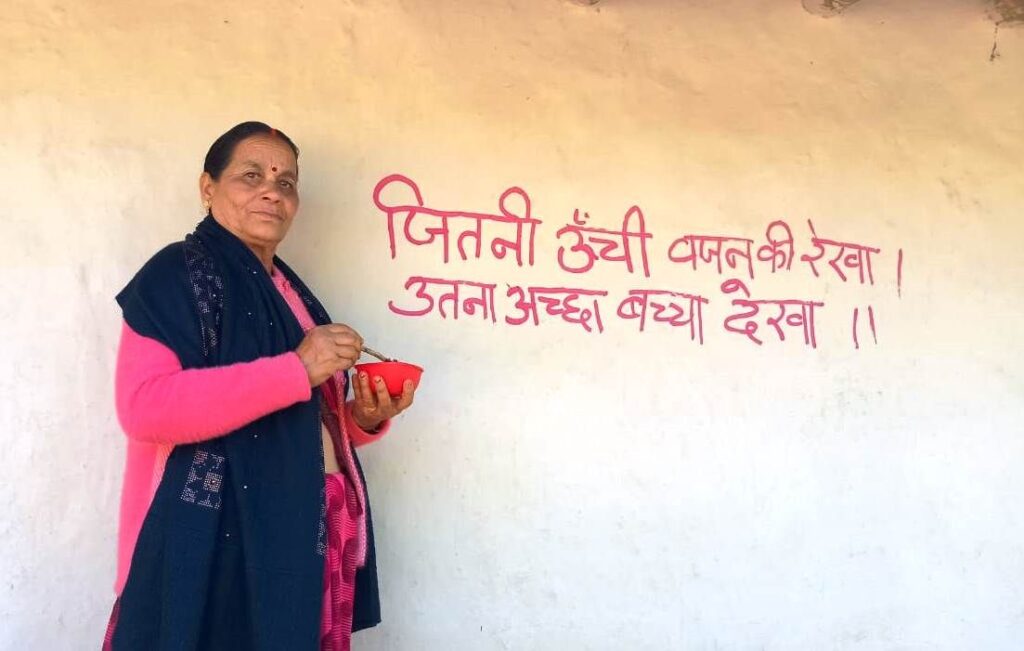 जितनी ऊँची वजन की रेखा ।
उतना अच्छा बच्चा देखा ।।